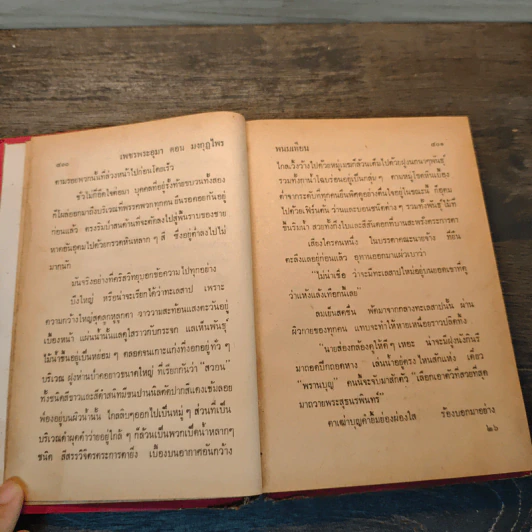 ๘๐๐ เพชรพระอุมา ตอน มงกุฎไพร
ตามรอยพรานนำที่ล่วงหน้าไปก่อนโดยเร็ว
ชั่วไม่กี่อึดใจต่อมา บุคคลที่อยู่รั้งท้ายขบวนทั้งสอง
ก็โผล่ออกมาถึงบริเวณที่พรรคพวกทุกคน ยืนรอคอยกันอยู่
ก่อนแล้ว ตรงริมป่าสนด้านที่จะตัดลงไปสู่พื้นราบของชาย
หาดอันอุดมไปด้วยกรวดหินหลาก ๆ สี ซึ่งอยู่ต่ำลงไปไม่
มากนัก
มันจริงอย่างที่คริสวิทยุบอกข้อความไปทุกอย่าง
บึงใหญ่ หรือน่าจะเรียกได้ว่าทะเลสาป เพราะ
ความกว้างใหญ่สุดลูกหูลูกตา วาววามสะท้อนแสงตะวันอยู่
เบื้องหน้า แผ่นน้ำนั้นแลดูใสราวกับกระจก แลเห็นพันธุ์
ไม้น้ำขึ้นอยู่เป็นหย่อม ๆ ตลอดจนเกาะแก่งที่งอกอยู่ทั่ว ๆ
บริเวณ ฝูงห่านป่าคอยาวขนาดใหญ่ ที่เรียกกันว่า "สวอน"
ทั้งชนิดสีขาวและสีดำสนิทมีขนปานนิลตัดปากสีแดงเข้มลอย
ฟ่องอยู่บนผิวน้ำนั้น ใกล้บ้างออกไปเป็นหมู่ ๆ ส่วนที่เป็น
บริเวณดำผุดดำว่ายอยู่ใกล้ ๆ ก็ล้วนเป็นพวกเป็ดน้ำหลากๆ
ชนิด สีสรรวิจิตรตระการตายิ่ง เบื้องบนอากาศอันกว้าง
พนมเทียน ๘๐๑
ไกลเวิ้งว้างไปด้วยหมู่เมฆก็ล้วนเต็มไปด้วยฝูงนกนาๆพันธุ์
รวมทั้งกาน้ำโฉบร่อนอยู่เป็นกลุ่ม ๆ ตาเหมู่โขดหินเนื้อง
ต่ำจากระดับที่ทุกคนยืนพิศดูอย่างตื่นใจอยู่ในขณะนี้ ก็อุดม
ไปด้วยเฟิร์นต้น ว่านและบอนชนิดต่าง ๆ รวมทั้งพันธุ์ไม้ที่
ขึ้นริมน้ำ สวยทั้งกิ่งใบและสีสันดอกที่บานสะพรั่งตระการตา
เสียงใครคนหนึ่ง ในบรรดาคณะนายจ้าง ที่ยืน
ตะลึงแลอยู่ก่อนแล้ว อุทานออกมาแผ่วเบาว่า
"ไม่น่าเชื่อ ว่าจะมีทะเลสาปใหม่อยู่บนยอดเขาที่ดู
ว่าแห้งแล้งเทือกนี้เลย"
ลมเย็นสดชื่น พัดมาจากกลางทะเลสาปนั้น ผ่าน
ผิวกายของทุกคน แทบจะทำให้หายเหนื่อยราวปลิดทิ้ง
"นายส่องกล้องดูให้ดีๆ เหอะ น่าจะมีฝูงนกินรี
มาถอดปีกถอดหาง เล่นน้ำอยู่ตรงไหนสักแห่ง เดี๋ยว
"พรานบุญ" คนนี้จะจับมาสักตัว เลือกเอาตัวที่สวยที่สุด
มาถวายพระสุธนรพินทร์"
ตาเฒ่าบุญคำยิ้มย่องผ่องใส ร้องบอกมาอย่าง
๒๖